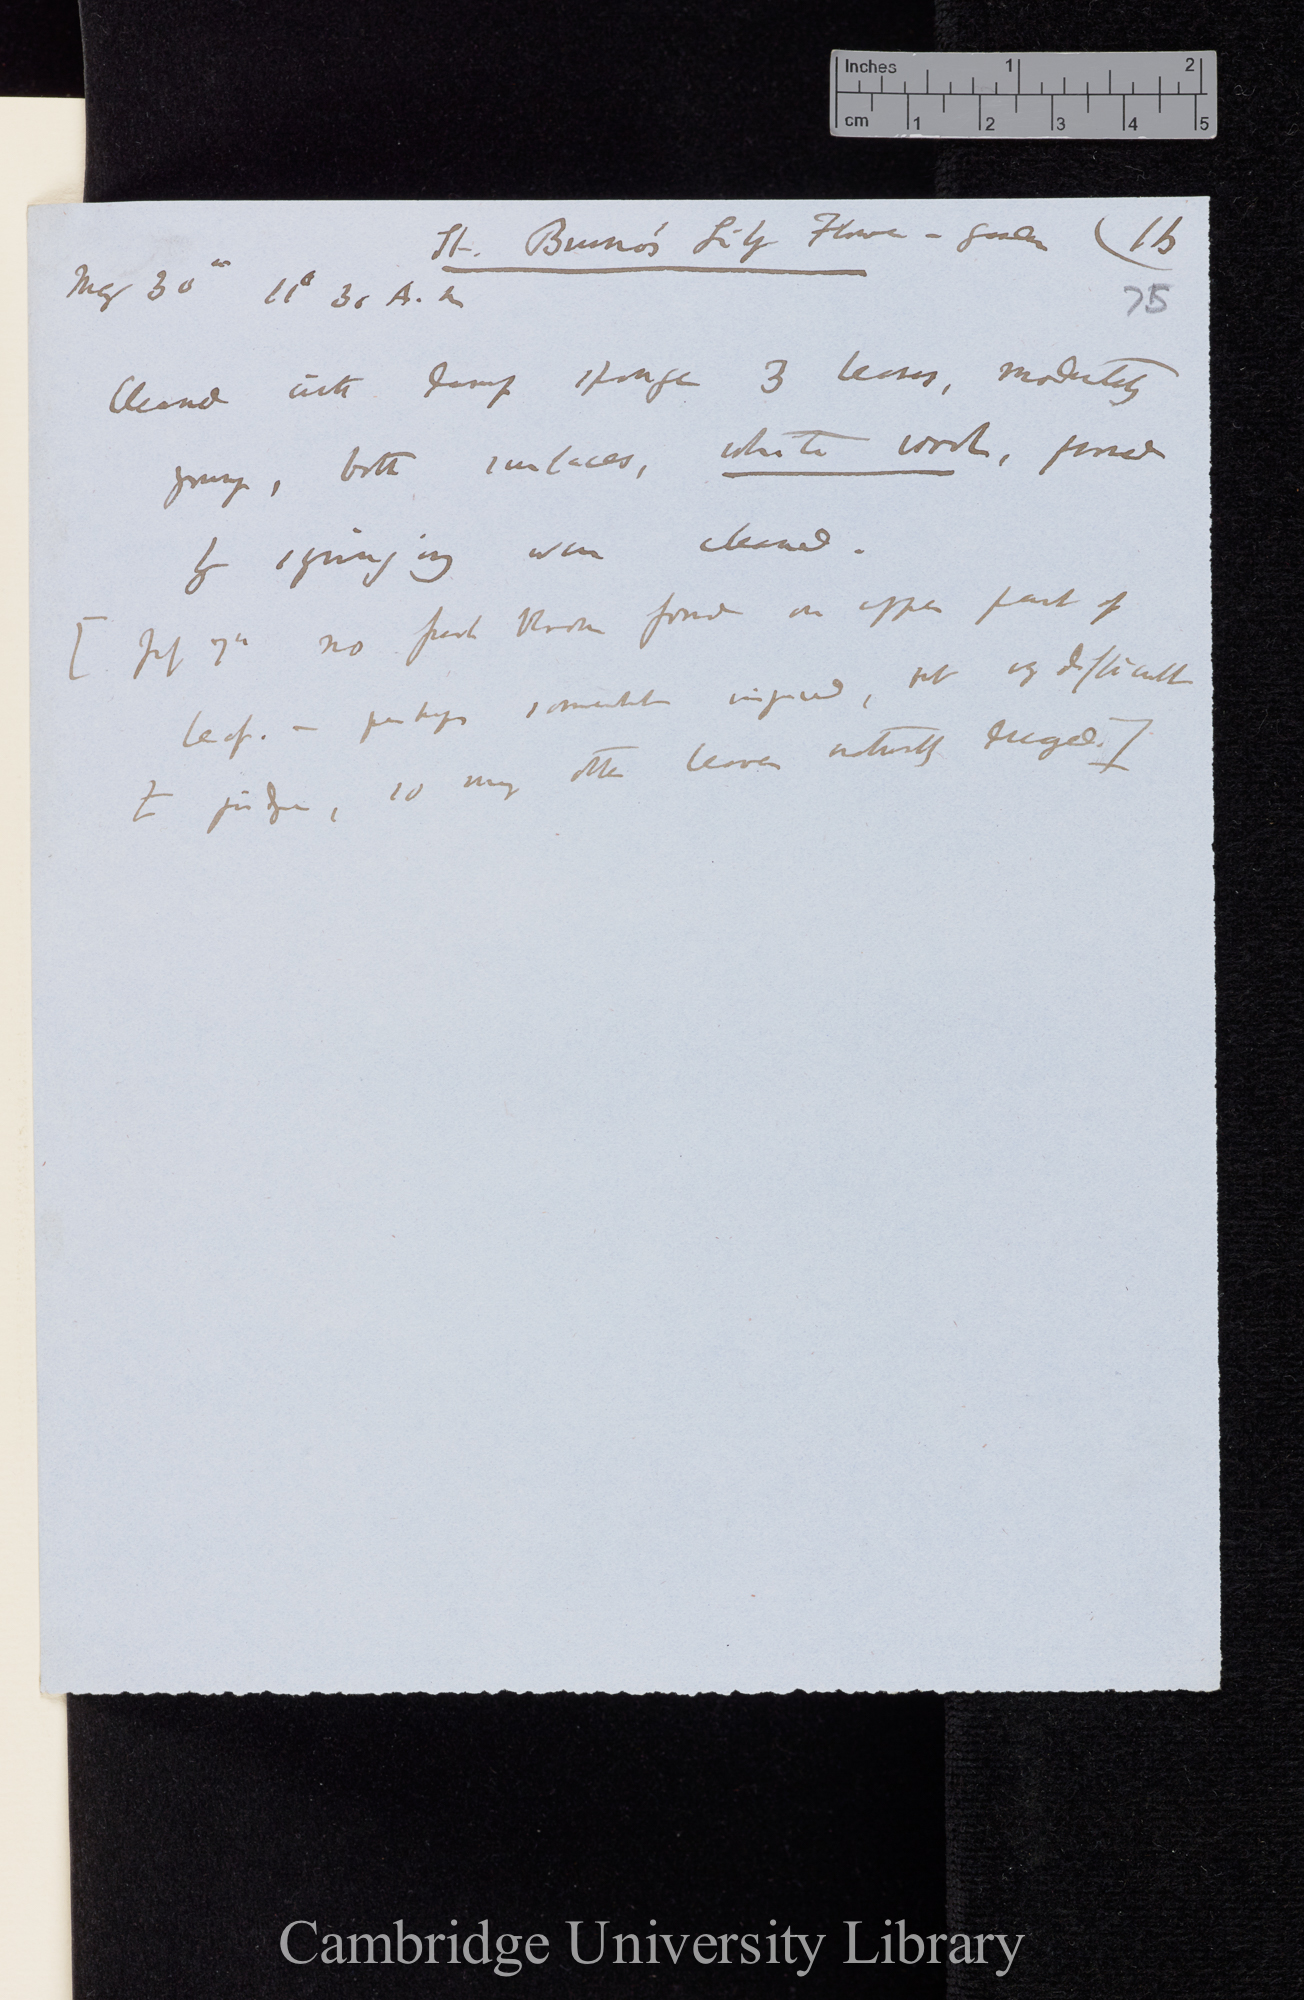 Inches 1 2
cm 1 2 3 4 5
St. Bruno's Lily Flower - garden (16
75
May 30th 11° 30 A. m
Cleaned with damp sponge 3 leaves, moderately
young, both surfaces, white wool, proved
by syringing were cleaned.
[July 7th no fresh bloom found on upper part of
leaf. - perhaps somewhat injured, but very difficult
to judge, so many other leaves naturally injured.]
Cambridge University Library